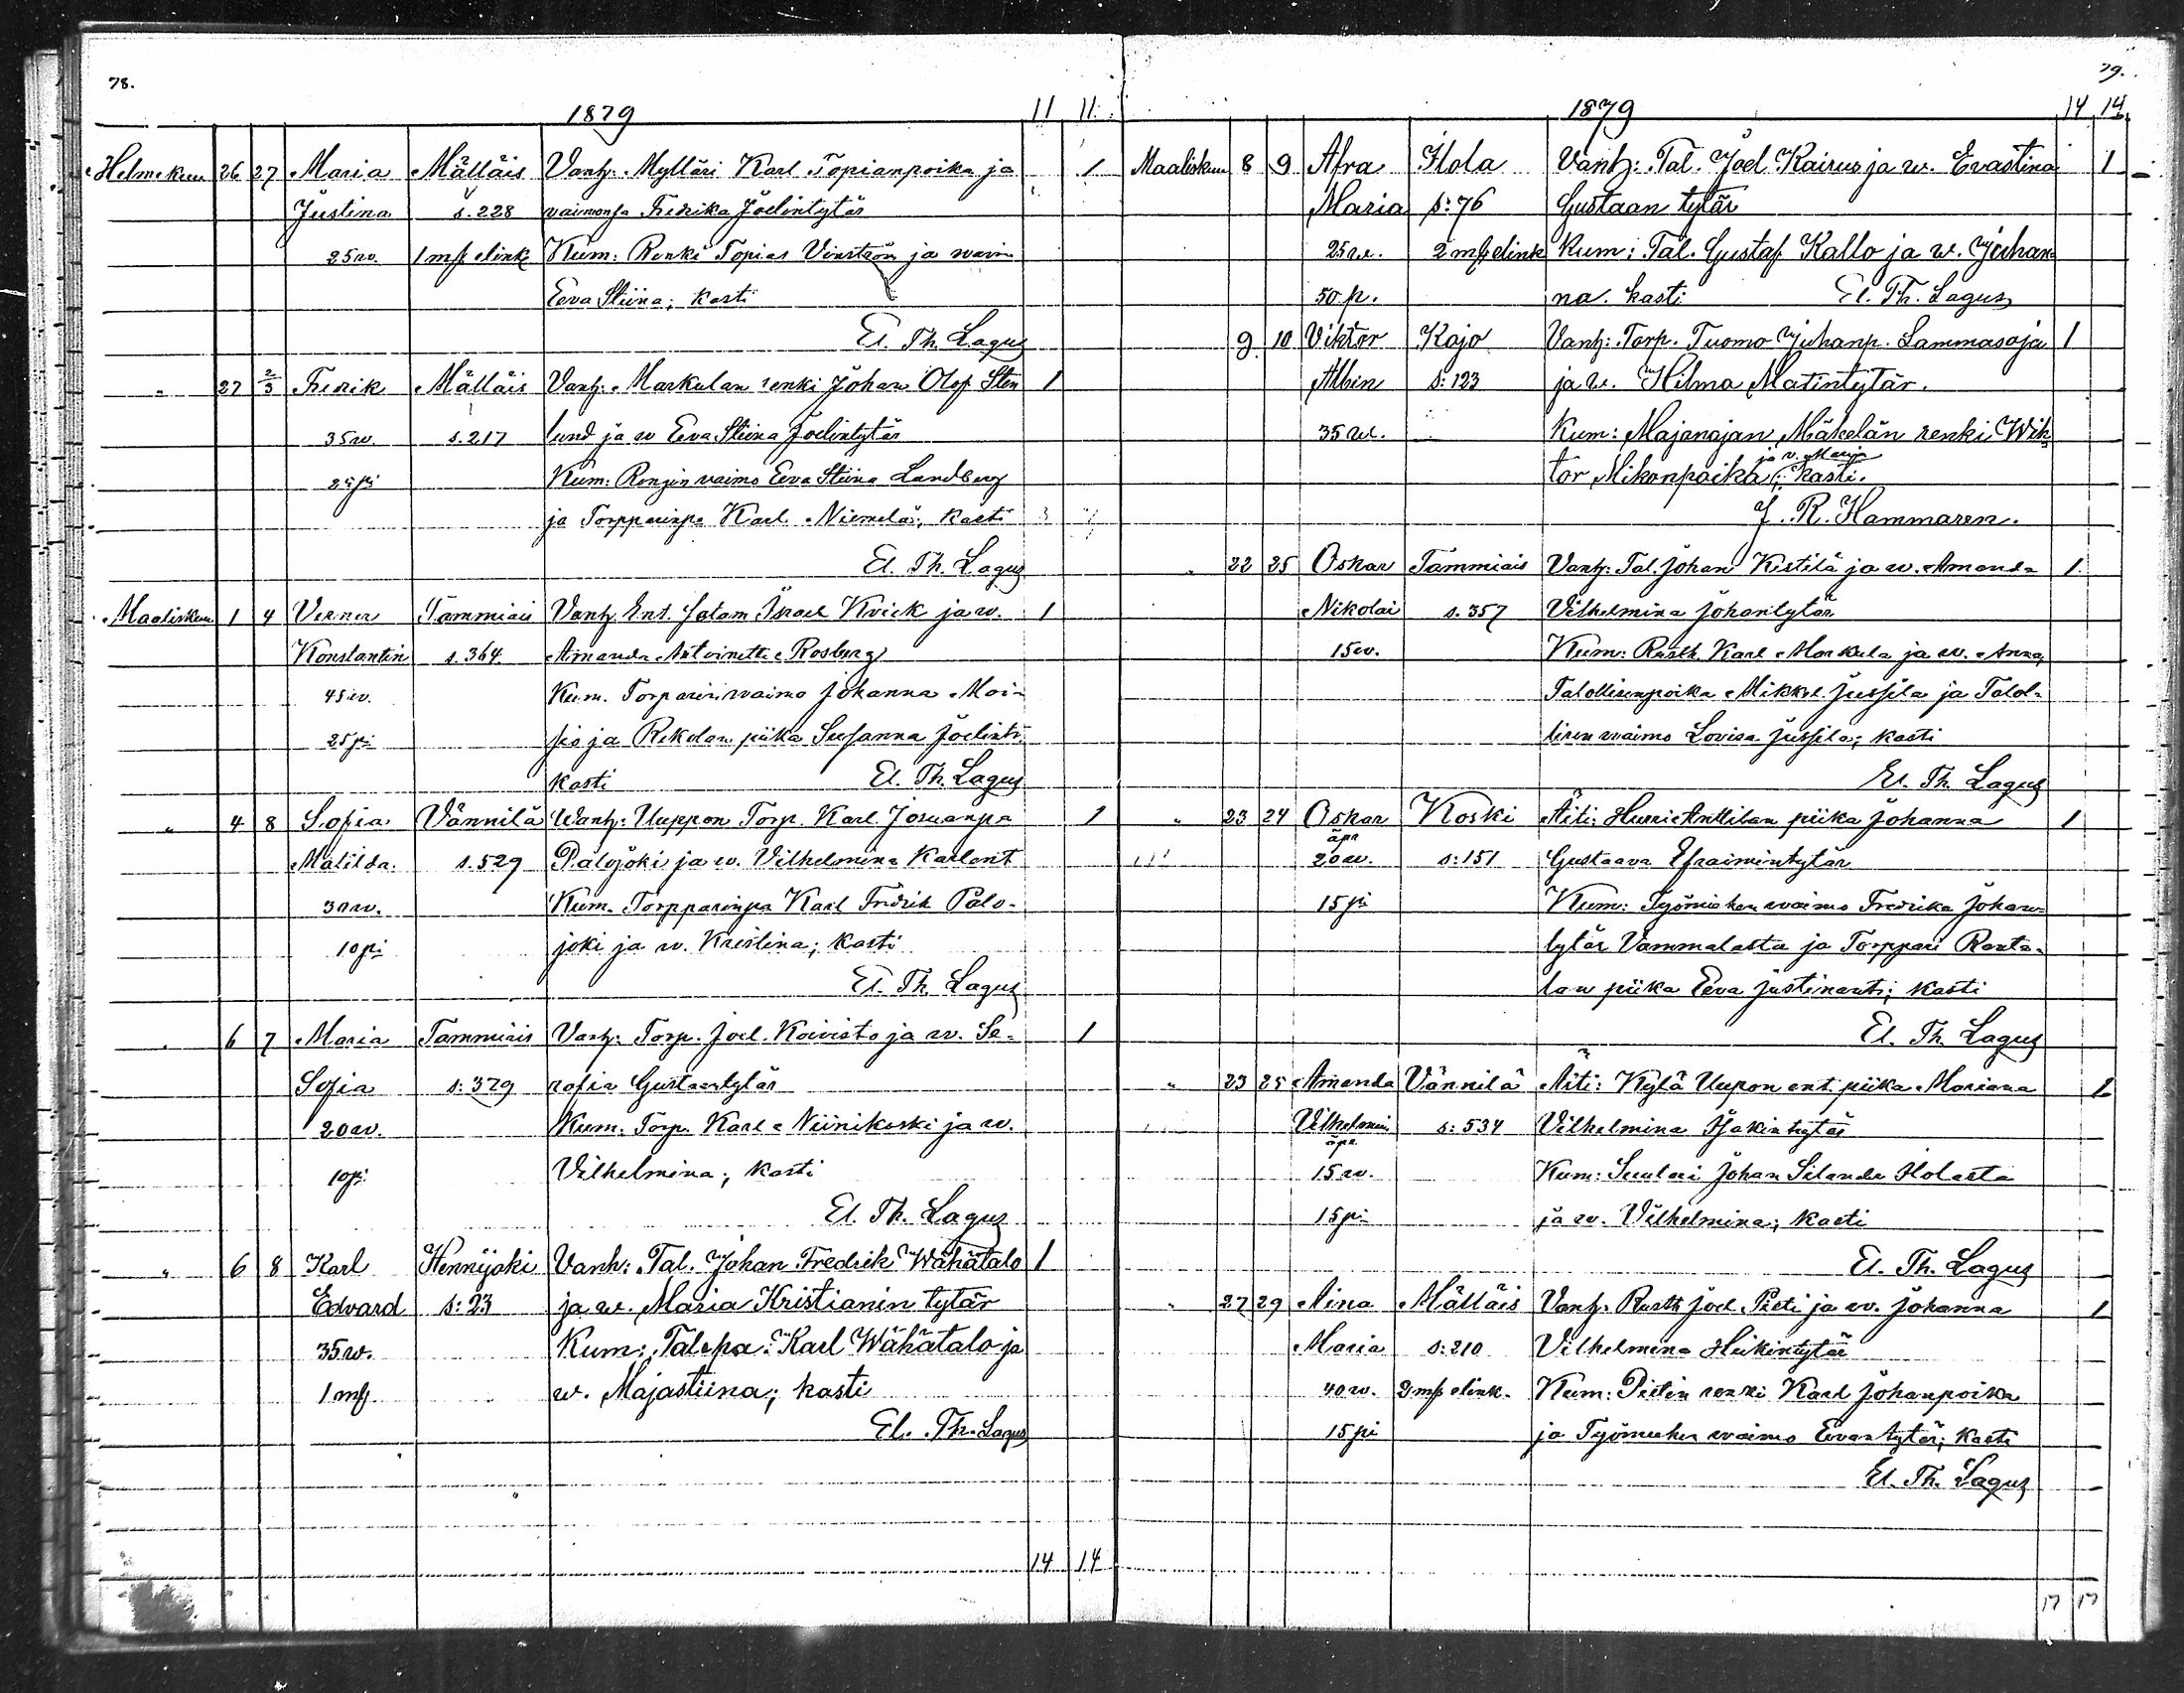 78.
1879 11 11
Helmekuu 26 27 Maria Mälläis Vanh: Mylläri Karl Topianpoika ja 1
Justina s. 228 vaimonsa Fredrika Joelintytär
25 w. 1 mk elink Kum: Renki Topias Vinström ja waim
Eeva Stiina; kasti
El. Th. Lagus
" 27 2/3 Fredrik Mälläis Vanh: Markulan renki Johan Olof Sten 1
35 w. s. 217 lund ja w Eeva Stiina Joelintytär
25 pi Kum: Rengin vaimo Eeva Stiina Landberg
ja Torpparinpa Karl Niemelä; kasti
El. Th. Lagus
Maaliskuu 1 4 Verner Tammiais Vanh. Ent. Israel Kvick ja w. 1
Konstantin s. 364 Amanda Antoinette Rosberg
45 w. Kum. Torparin waimo Johanna Moi-
25 pi sio ja Rekolan piika Susanna Joelint:
kasti El. Th. Lagus
" 4 8 Sofia Vännilä Wanh: Uuppon Torp. Karl Josuanpa 1
Matilda s. 529 Palojoki ja w. Vilhelmina Karlent
30 w. Kum. Torpparinpa Karl Fredrik Palo-
10 pi joki ja w. Kristina; kasti
El. Th. Lagus
" 6 7 Maria Tammiais Vanh: Torp. Joel Koivisto ja w. Se- 1
Sofia s: 379 rafia Gustaantytär
20 w. Kum. Torp. Karl Niinikoski ja w.
10 pi Vilhelmina; kasti
El. Th. Lagus
" 6 8 Karl Hennijoki Vanh: Tal. Johan Fredrik Wähätalo 1
Edvard s: 23 ja w. Maria Kristianin tytär
35 w. Kum: Tal. pa: Karl Wähätalo ja
1 mk w. Majastiina; kasti
El. Th. Lagus
14 14
79.
1879 14 14
Maaliskuu 8 9 Afra Ilola Vanh: Tal. Joel Kairus ja w. Evastina 1
Maria s: 76 Gustaan tytär
25 w. 2 mk elink Kum: Tal. Gustaf Kallo ja w. Juhan-
50 p. na. kasti El. Th. Lagus
9 10 Viktor Kojo Vanh: Torp. Tuomo Juhanp. Lammasoja 1
Albin s: 123 ja w. Hilma Matintytär.
35 w. Kum: Majanojan Mäkelän renki Wih-
ja v. Maria
tor Mikonpoika; kasti.
J. R. Hammaren.
" 22 25 Oskar Tammiais Vanh: Tal. Johan Kistilä ja w. Amanda 1
Nikolai s. 357 Vilhelmina Johantytär
15 w. Kum: Rusth. Karl Markula ja w. Anna,
Talollisenpoika Mikkel Jussila ja Talol-
lisen waimo Lovisa Jussila; kasti
El. Th. Lagus
" 23 24 Oskar Koski Äiti: Hurri Anttilan piika Johanna 1
äpr
20 w. s: 151 Gustaava Efraimintytär
15 pi Kum: Työmiehen waimo Fredrika Johan-
tytär Vammalasta ja Torppari Ranta-
lan piika Eeva Justinant; kasti
El. Th. Lagus
" 23 25 Amanda Vännilä Äiti: Kylä Uupon ent. piika Mariana 1
Vilhelmin s: 534 Vilhelmina Isakintytär
äpr.
15 w. Kum: Suulari Johan Silander Ilolasta
15 pi ja w. Vilhelmina; kasti
El. Th. Lagus
" 27 29 Aina Mälläis Vanh: Rusth Joel Pieti ja w. Johanna 1
Maria s: 210 Vilhelmina Heikintytär
40 w. 2 mk elink. Kum: Pietin renki Karl Johanpoika
15 pi ja Työmiehen waimo Eevantytär; kasti
El. Th. Lagus
17 17